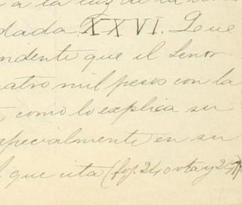 a la luz de la
dada XXVI. Que
ndente que el Señor
atro mil pesos con la
, como lo explica su
specialmente en su
l que cita (foj. 24, octa y 25